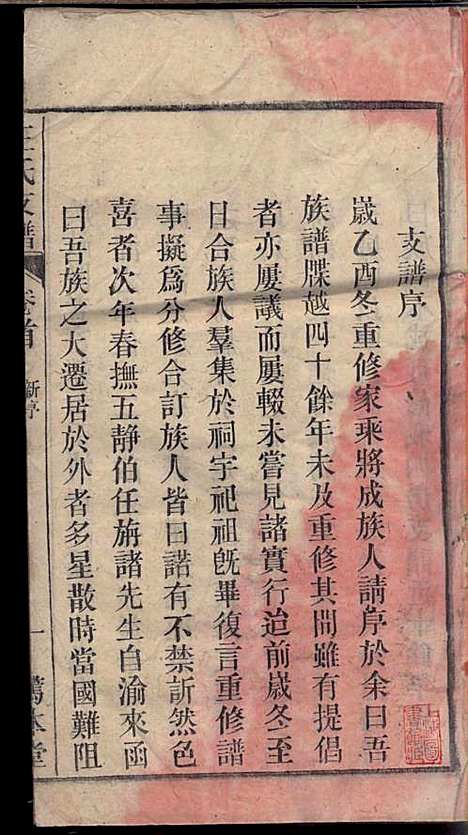 支譜序
歲乙酉冬重修家乘將成族人請序於余曰吾
族譜牒越四十餘年未及重修其間雖有提倡
者亦屢議而屢輟未嘗見諸實行迨前歲冬至
日合族人羣集於祠宇祀祖旣畢復言重修譜
事擬爲分修合訂族人皆曰諾有不禁訢然色
喜者次年春撫五靜伯任旃諸先生自渝來函
曰吾族之大遷居於外者多星散時當國難阻
王氏支譜
卷首
新序
一
篤本堂